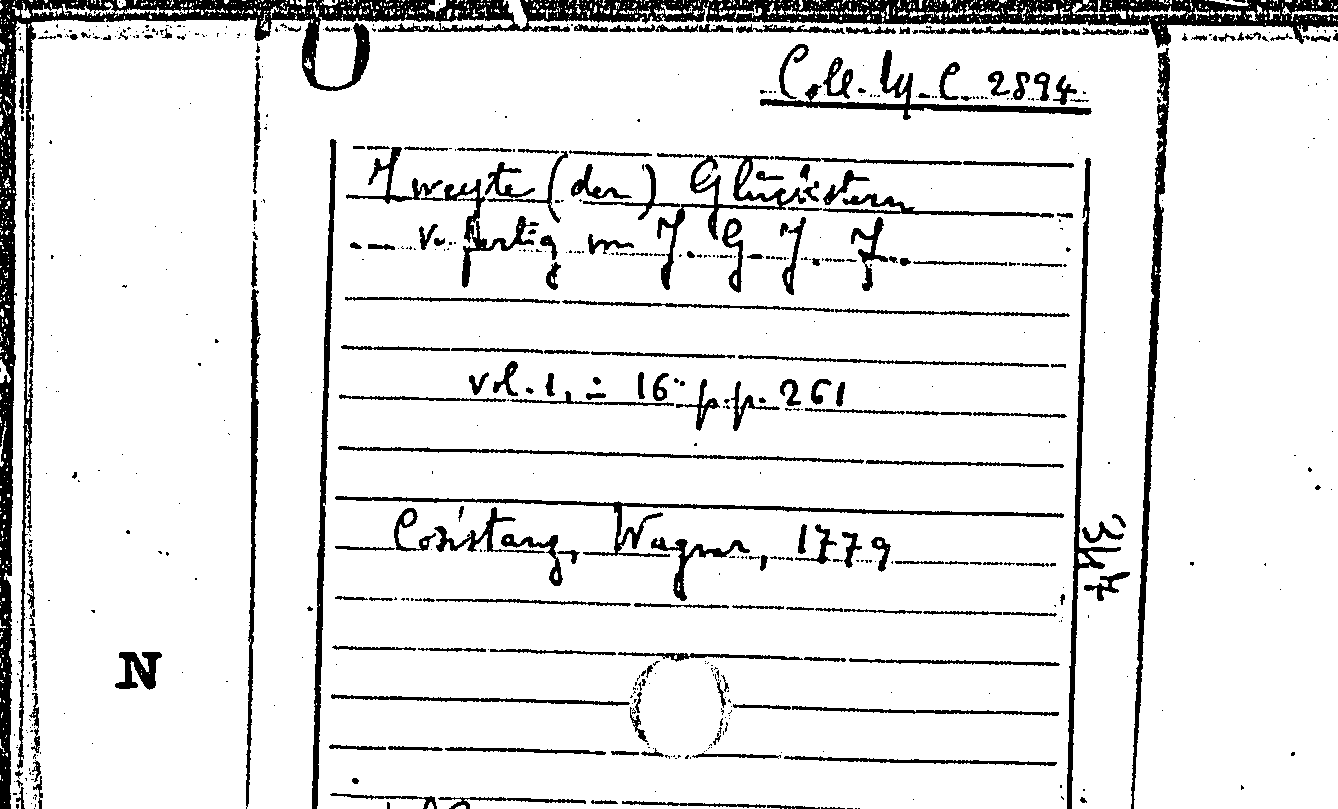 O
Coll. Ly. C. 2894
Zweyte (der) Glückstern
... verfertig von J. G. J. J...
vol. 1, in 16° p.p. 261
Costanz, Wagner, 1779
N